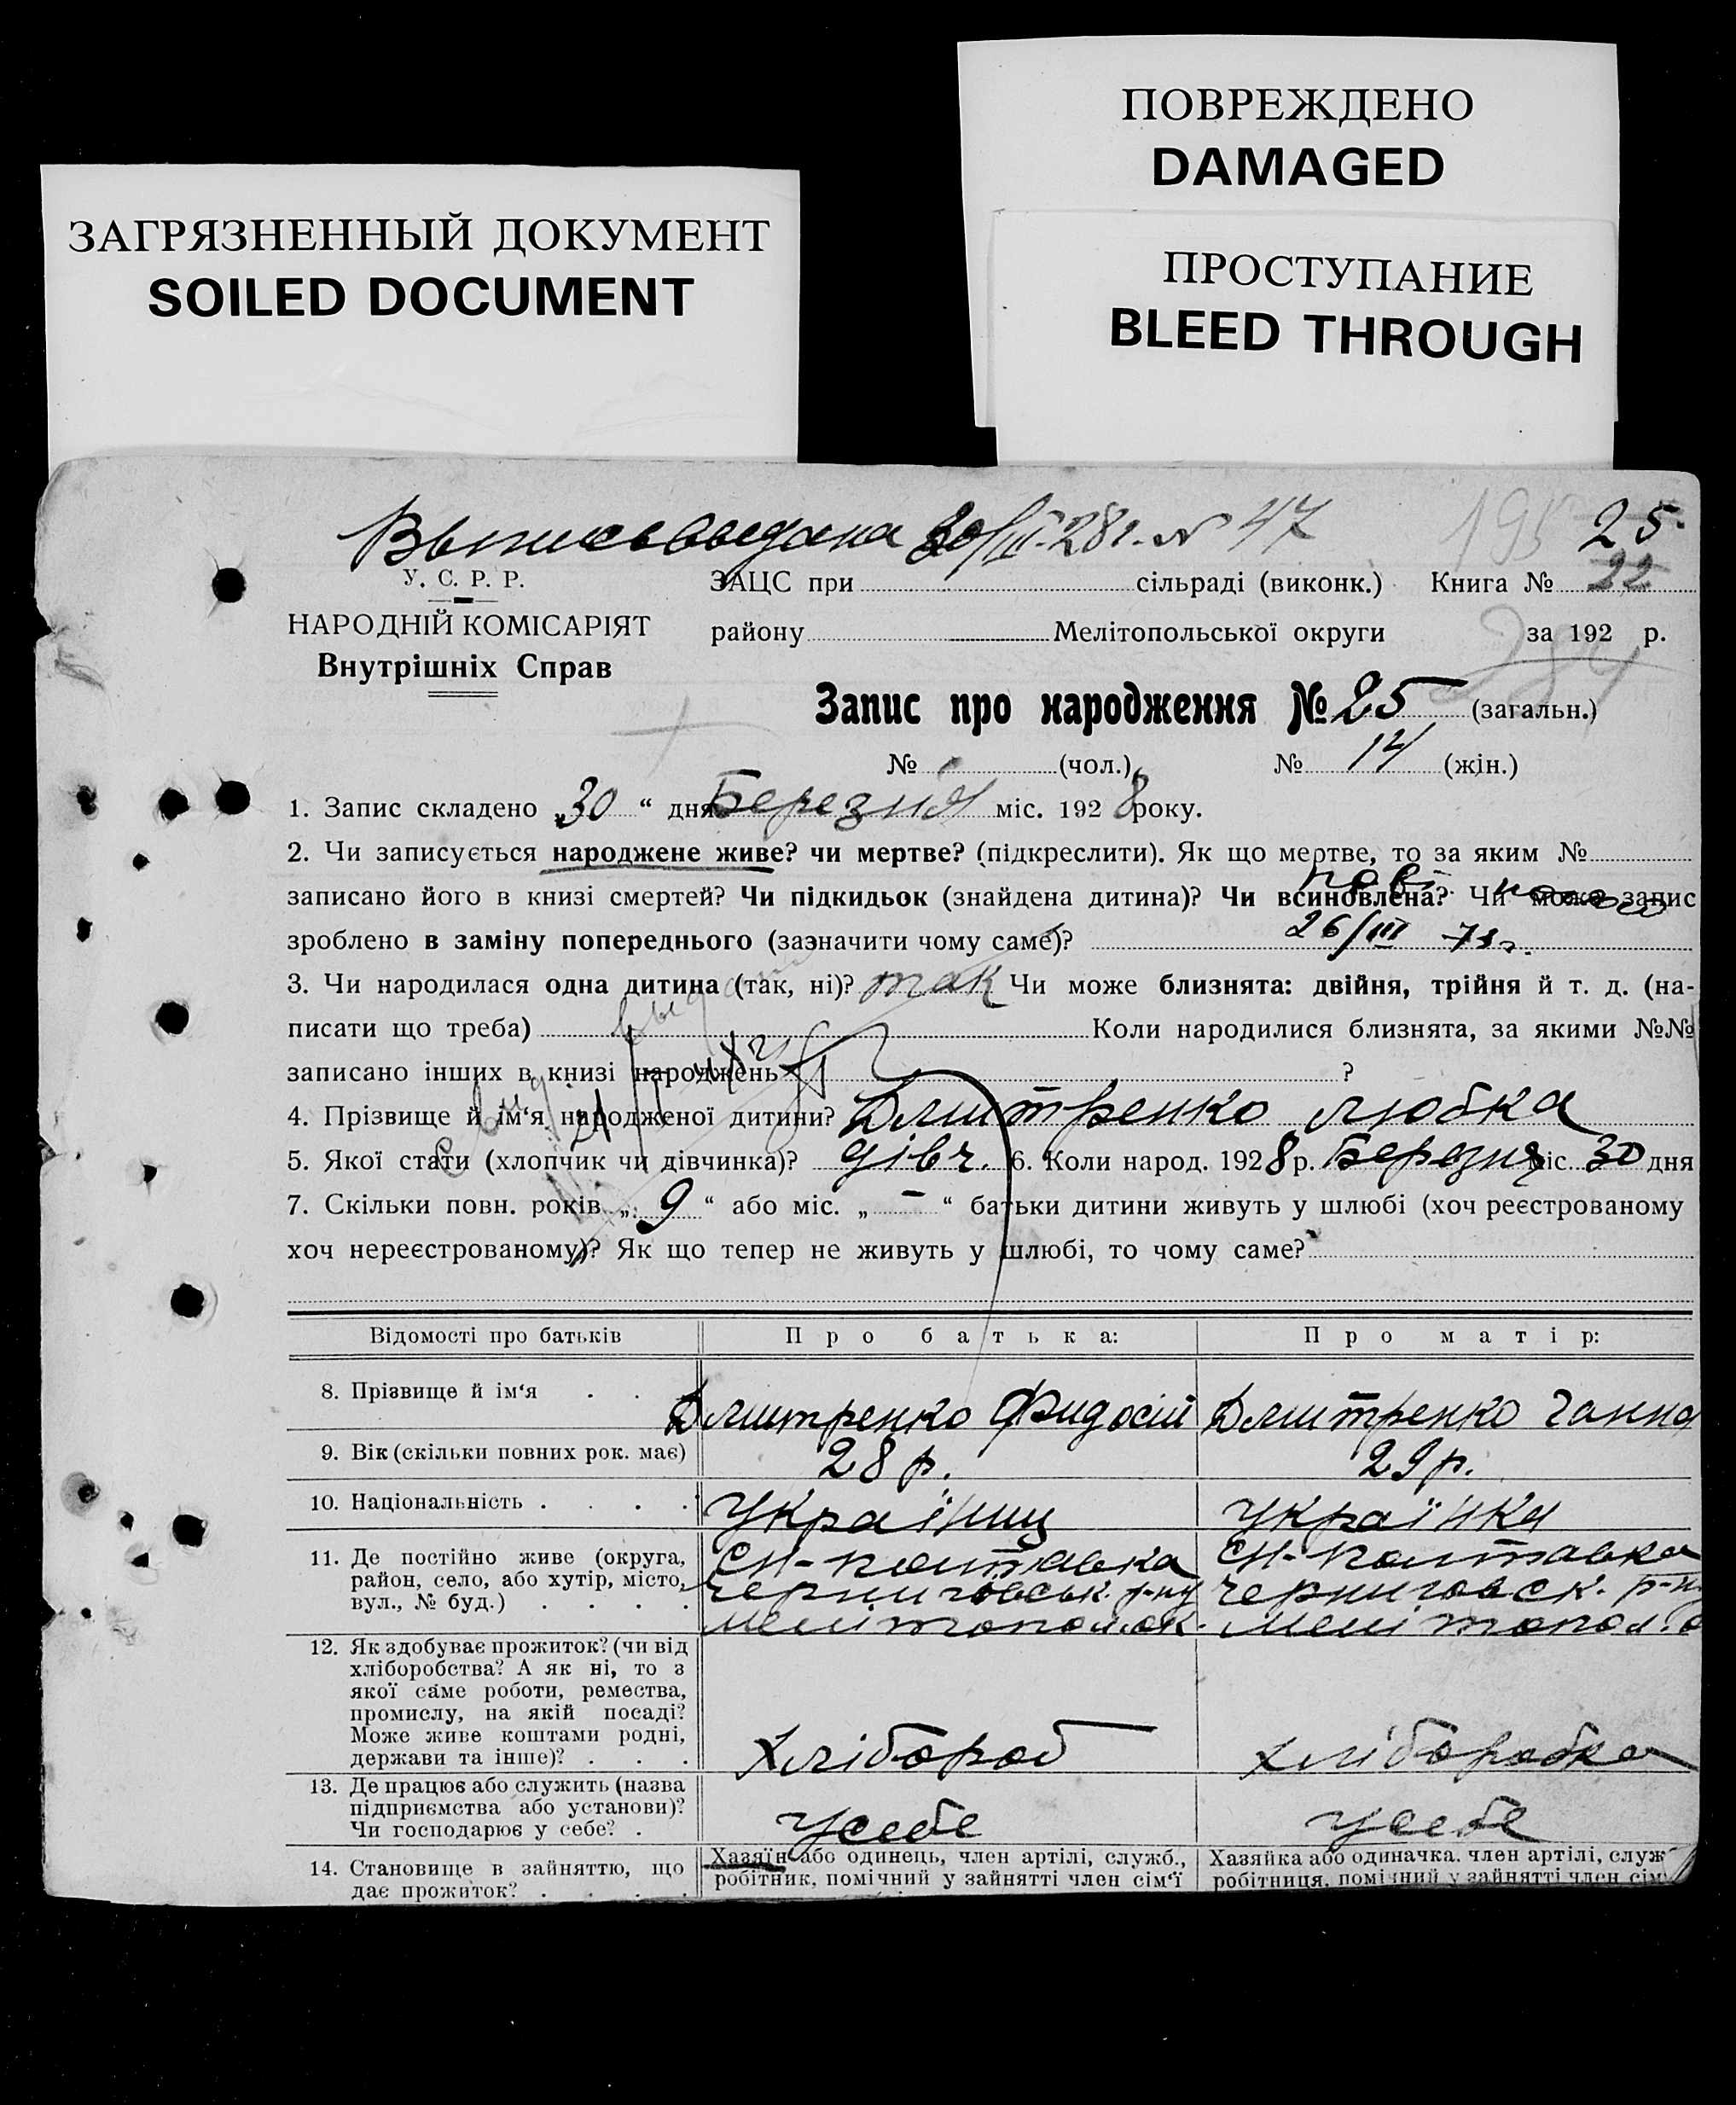 ПОВРЕЖДЕНО
DAMAGED
ЗАГРЯЗНЕННЫЙ ДОКУМЕНТ
SOILED DOCUMENT
ПРОСТУПАНИЕ
BLEED THROUGH
Выпись выдана 30/III-28г. № 47
195 25
У. С. Р. Р.
ЗАЦС при сільраді (виконк.) Книга № 22
НАРОДНІЙ КОМІСАРІЯТ
району Мелітопольської округи за 192 р.
Внутрішніх Справ
Запис про народження № 25 (загальн.)
№ (чол.) № 14 (жін.)
1. Запис складено „30“ дня Березня міс. 1928 року.
2. Чи записується народжене живе? чи мертве? (підкреслити). Як що мертве, то за яким №
записано його в книзі смертей? Чи підкидьок (знайдена дитина)? Чи всиновлена? Чи може запис
зроблено в заміну попереднього (зазначити чому саме)? 26/III
3. Чи народилася одна дитина (так, ні)? так Чи може близнята: двійня, трійня й т. д. (на-
писати що треба) Коли народилися близнята, за якими №№
записано інших в книзі народжень ?
4. Прізвище й ім‘я народженої дитини? Дмитренко Любка
5. Якої стати (хлопчик чи дівчинка)? дівч. 6. Коли народ. 1928 р. Березня міс 30 дня
7. Скільки повн. років „9“ або міс. „–“ батьки дитини живуть у шлюбі (хоч реєстрованому
хоч нереєстрованому)? Як що тепер не живуть у шлюбі, то чому саме?
Відомості про батьків Про батька: Про матір:
8. Прізвище й ім‘я . . Дмитренко Фидосій Дмитренко Ганна
9. Вік (скільки повних рок. має) 28 р. 29 р.
10. Національність . . . . Українц Українка
11. Де постійно живе (округа, См-Полтавка См-Полтавка
район, село, або хутір, місто, Черниговськ. р-ну Черниговск. р-н
вул., № буд.) . . . . Мелітопол.ок. Мелітопол. о
12. Як здобуває прожиток? (чи від
хліборобства? А як ні, то з
якої саме роботи, ремества,
промислу, на якій посаді?
Може живе коштами родні,
держави та інше)? . . . Хлібороб хліборобка
13. Де працює або служить (назва
підприємства або установи)?
Чи господарює у себе? . Усебе Усебе
14. Становище в зайняттю, що Хазяїн або одинець, член артілі, служб., Хазяйка або одиначка. член артілі, служ
дає прожиток? . . . . робітник, помічний у зайнятті член сім‘ї робітниця, помічний у зайнятті член сім